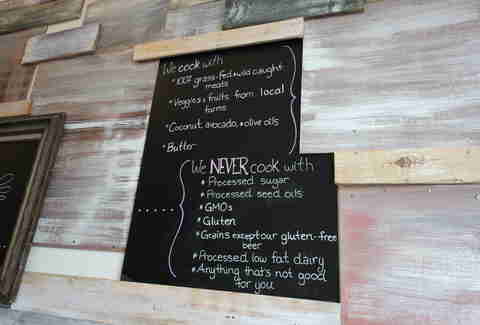 We cook with
• 100% grass-fed & wild caught
meats
• Veggies & fruits from local
farms
• Coconut, avocado, & olive oils
• Butter
We NEVER cook with
• Processed sugar
• Processed seed oils
• GMOs
• Gluten
• Grains except our gluten-free
beer
• Processed low fat dairy
• Anything that's not good
for you